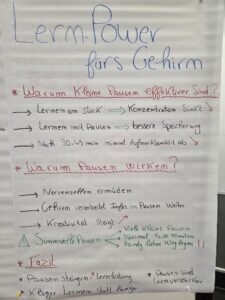 Lern-Power
fürs Gehirn
* Warum kleine Pausen effektiver sind?
→ Lernen am Stück ⇒ Konzentration sinkt ↘
→ Lernen mit Pausen ⇒ bessere Speicherung
→ Nach 30-45 min nimmt Aufmerksamkeit ab ↘
* Warum Pausen wirken?
→ Nervenzellen ermüden
→ Gehirn verarbeitet Infos in Pausen weiter
→ Kreativität steigt ↗
⚠ Sinnvolle Pausen
Viele kleine Pausen
Maximal Minuten
Handy lieber weglegen !!
* Fazit
* Pausen steigern Lernleistung
* Pausen sind Lernverstärker
* Klüger Lernen statt länger